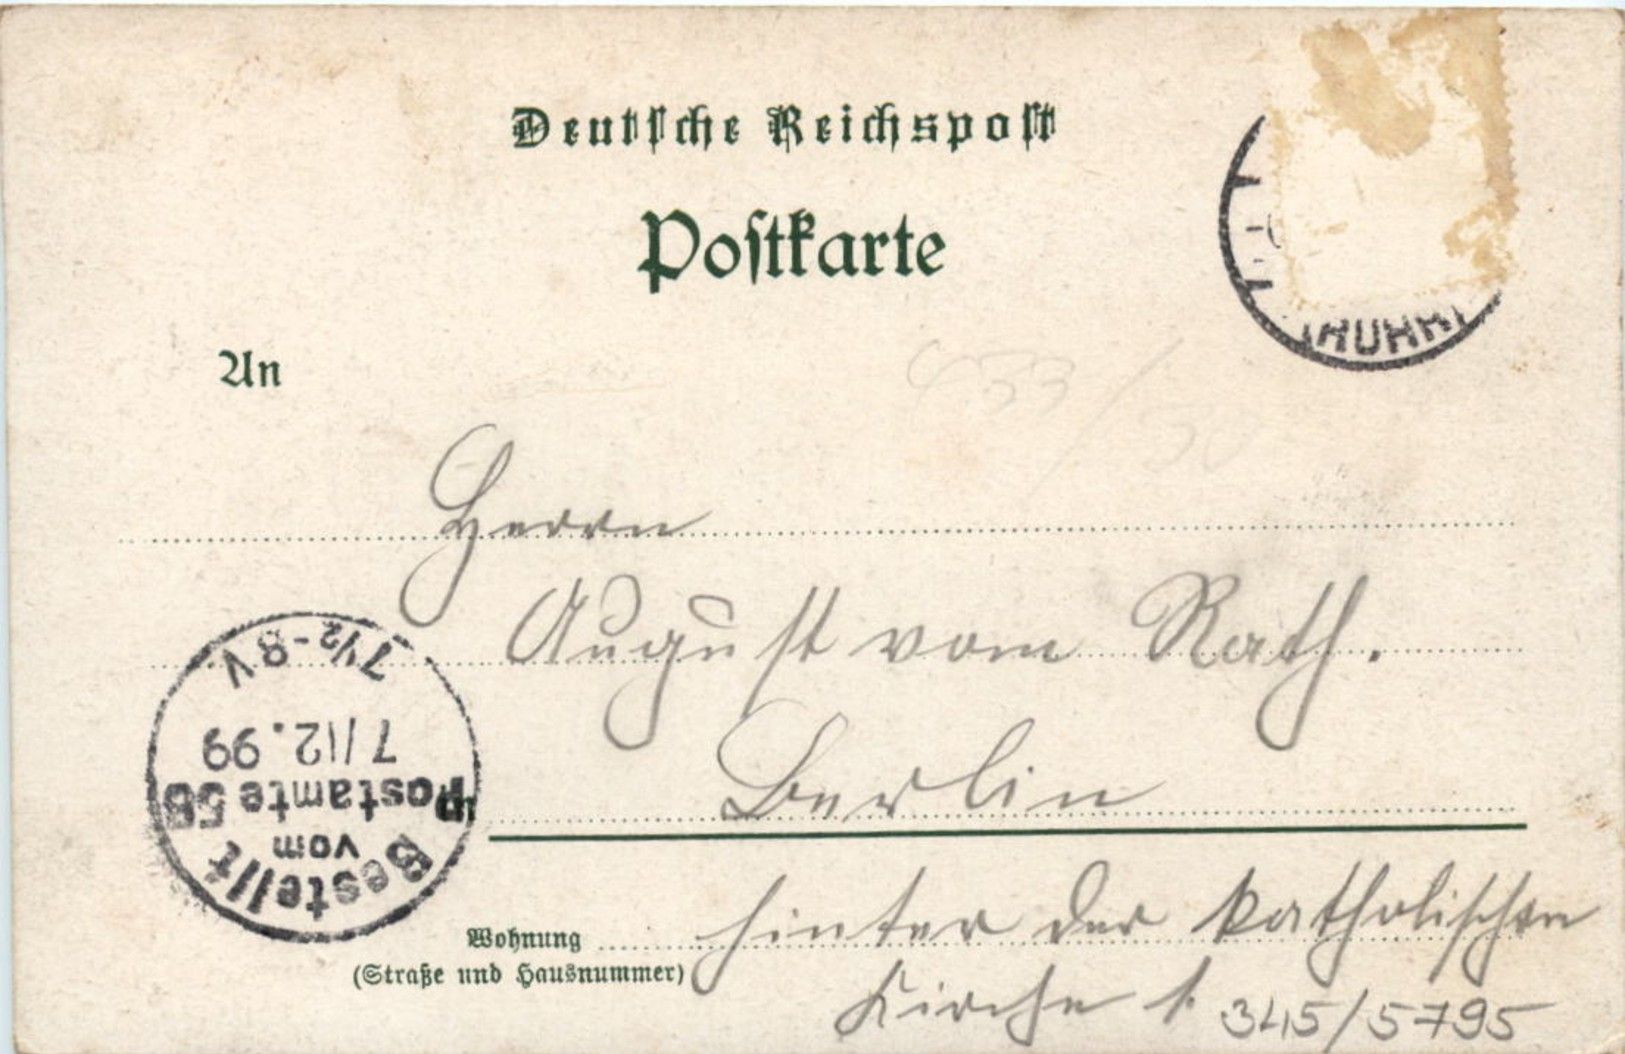 Deutsche Reichspost
Postkarte
(RUHR)
An
433/50
Herrn
August vom Rath.
Berlin
7½-8V
7/12.99
Postamte 58
vom
Bestellt
Wohnung hinter der katholischen
(Straße und Hausnummer)
Kirche 1.
345/5795